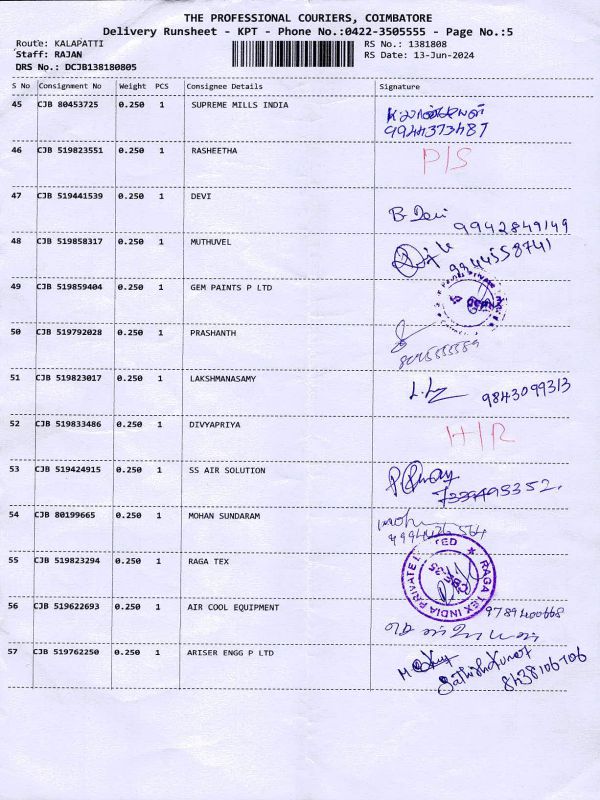 THE PROFESSIONAL COURIERS, COIMBATORE
Delivery Runsheet - KPT - Phone No.:0422-3505555 - Page No.:5
Route: KALAPATTI RS No.: 1381808
Staff: RAJAN RS Date: 13-Jun-2024
DRS No.: DCJB138180805
S No Consignment No Weight PCS Consignee Details Signature
45 CJB 80453725 0.250 1 SUPREME MILLS INDIA
9944373487
46 CJB 519823551 0.250 1 RASHEETHA P/S
47 CJB 519441539 0.250 1 DEVI B. Devi 9942849149
48 CJB 519858317 0.250 1 MUTHUVEL 9944558741
49 CJB 519859404 0.250 1 GEM PAINTS P LTD
50 CJB 519792028 0.250 1 PRASHANTH
51 CJB 519823017 0.250 1 LAKSHMANASAMY 9843099313
52 CJB 519833486 0.250 1 DIVYAPRIYA H/R
53 CJB 519424915 0.250 1 SS AIR SOLUTION
54 CJB 80199665 0.250 1 MOHAN SUNDARAM
55 CJB 519823294 0.250 1 RAGA TEX RAGA TEX INDIA PRIVATE LIMITED
56 CJB 519622693 0.250 1 AIR COOL EQUIPMENT 9789400668
57 CJB 519762250 0.250 1 ARISER ENGG P LTD Sathishkumar 8438106706